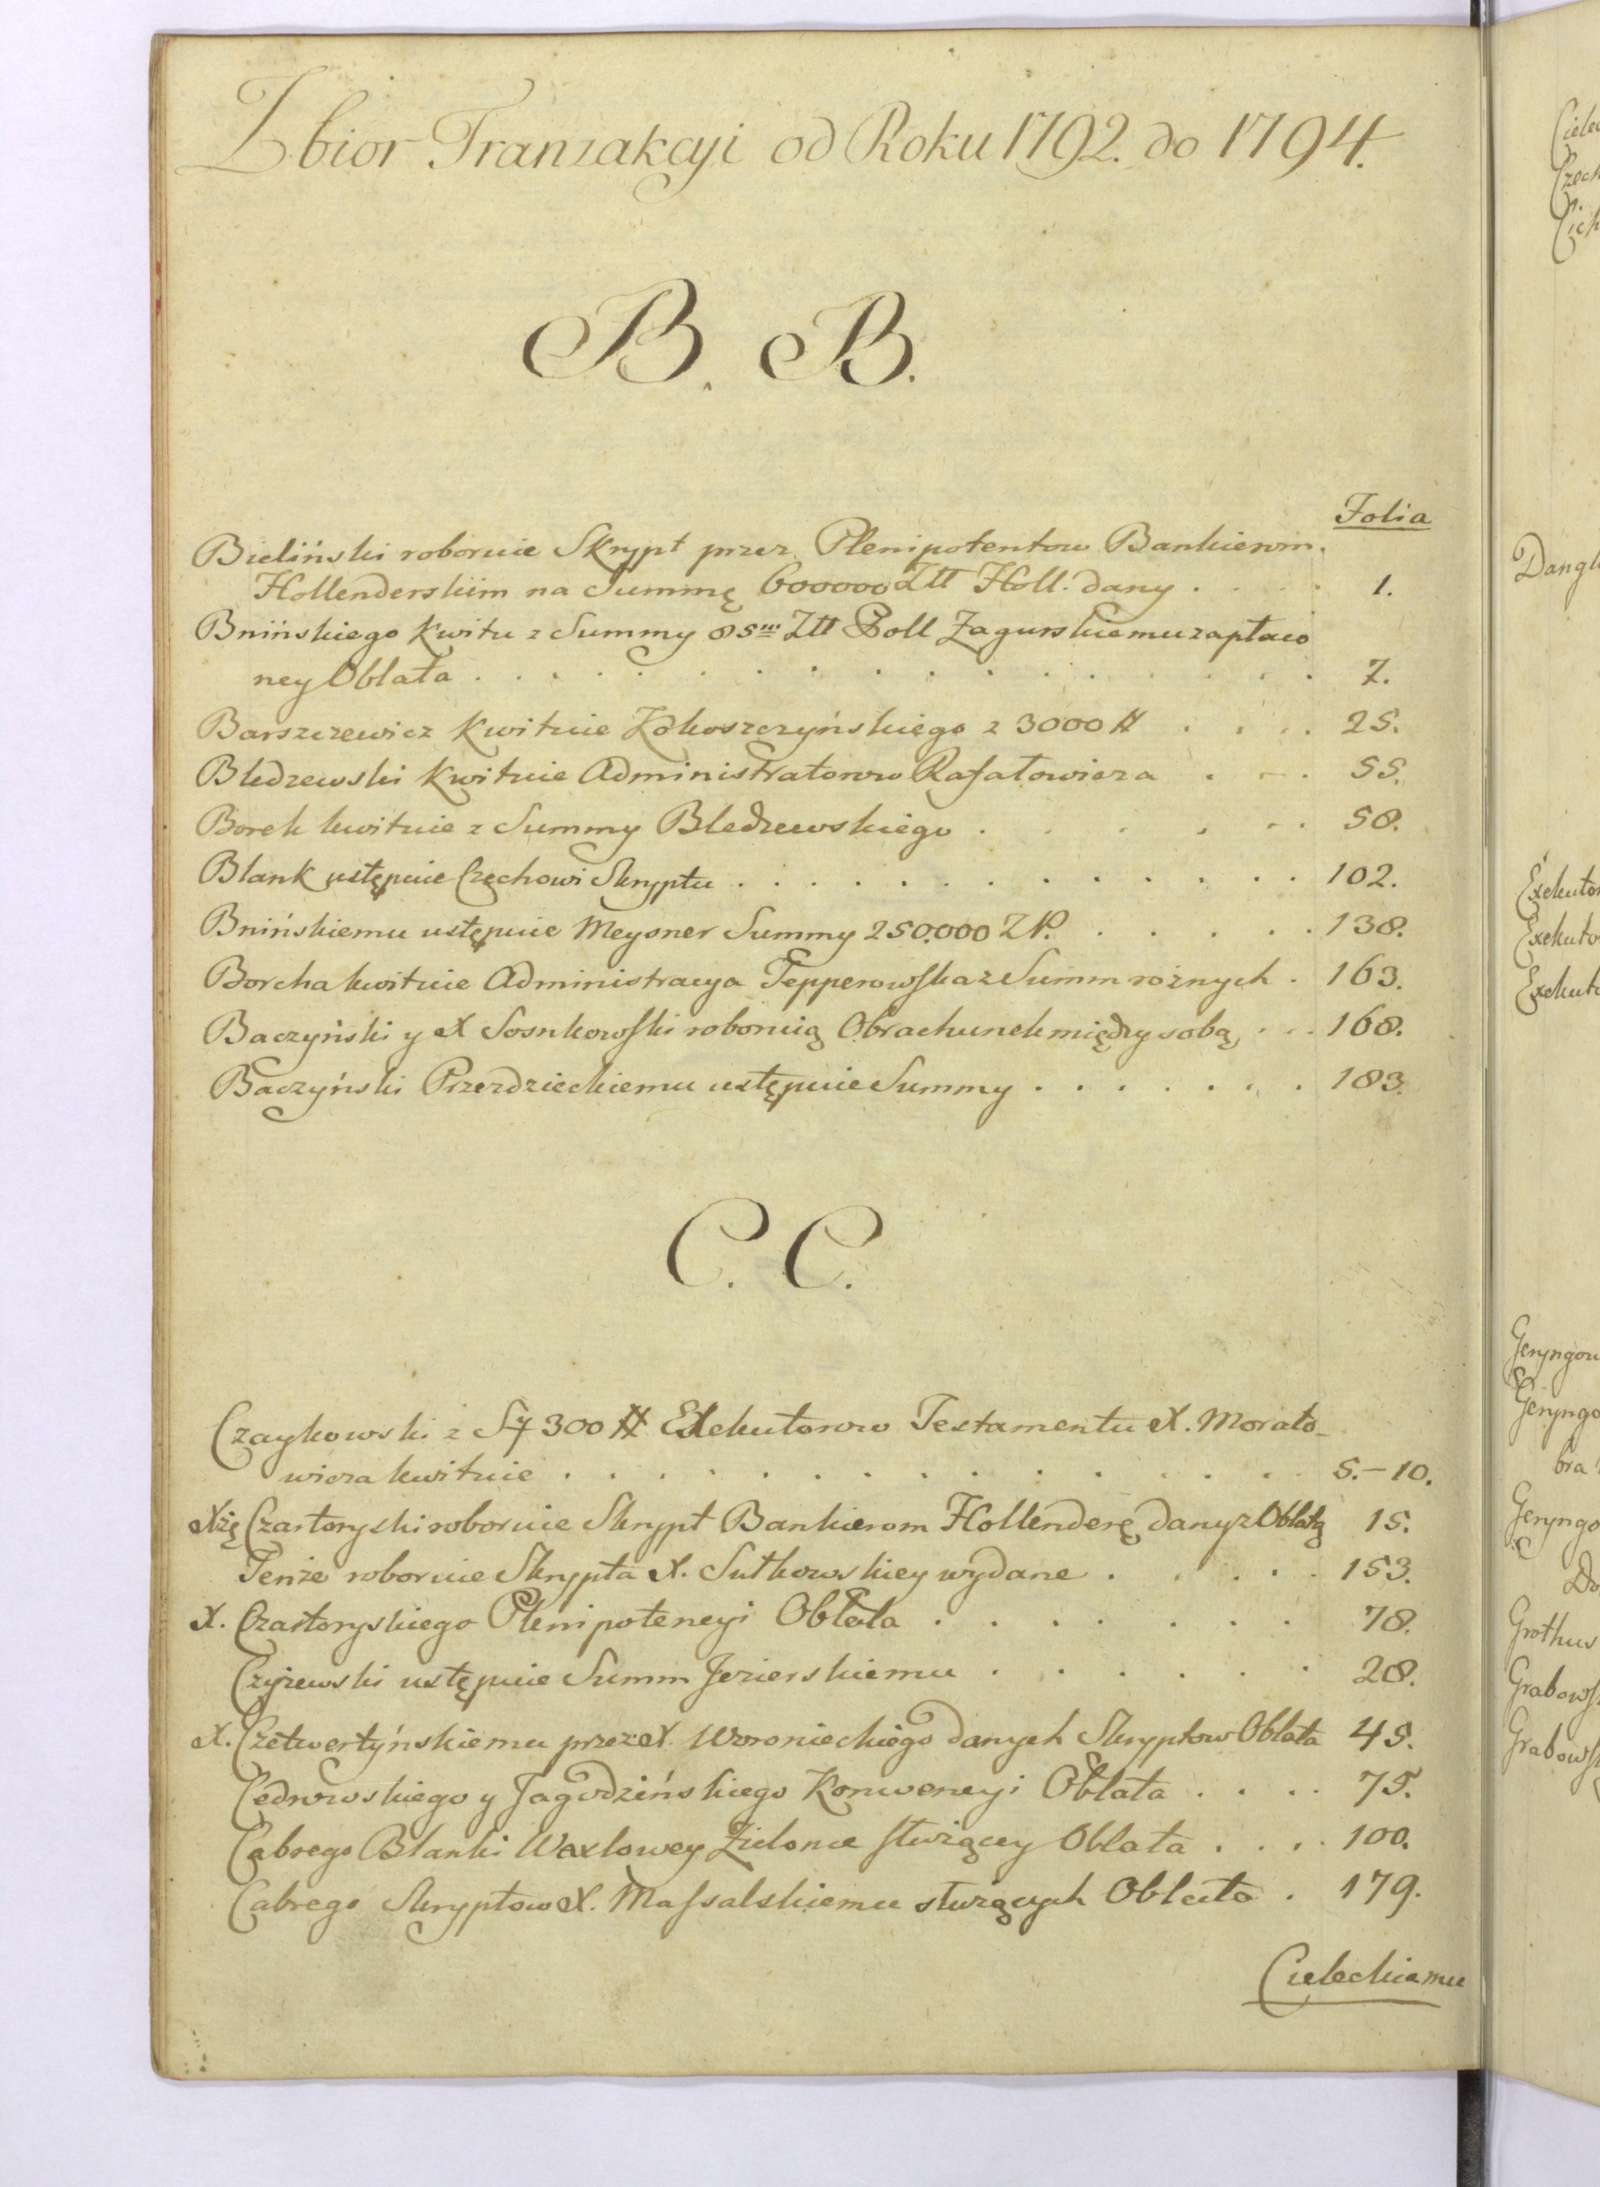 Zbior Tranzakcyi od Roku 1792. do 1794.
B. B.
Folia
Bieliński roboruie Skrypt przez Plenipotentow Bankierom
Hollenderskim na Summę 6000000 Ztt Holl. dany . . . . 1.
Bnińskiego kwitu z Summy 85m Ztt Poll Zagurskiemu zapłaco
ney Oblata . . . . . . . . . . . . . . 7.
Barszczewicz kwituie Kokoszczyńskiego z 3000 # . . . . 25.
Bledzewski kwituie Administratorow Rafałowicza . . . 55.
Borek kwituie z Summy Bledzewskiego . . . . . . 58.
Blank ustępuie Czechowi Skryptu . . . . . . . . . . . . 102.
Bnińskiemu ustępuie Meysner Summy 250.000 ZP. . . . . . 138.
Borcha kwituie Administracya Tepperowska z Summ rożnych . 163.
Baczyński y X Sosnkowski roboruią Obrachunek między sobą, . . . 168.
Baczyński Przezdzieckiemu ustępuie Summy . . . . . . . 183.
C. C.
Czaykowski z 300 # Exekutorow Testamentu X. Morato-
wicza kwituie . . . . . . . . . . . . . . 5.-10.
Xżę Czartoryski roboruie Skrypt Bankierom Hollenderę dany z Oblatą 15.
Tenże roboruie Skrypta X. Sułkowskiey wydane . . . . . 153.
X. Czartoryskiego Plenipotencyi Oblata . . . . . . . 78.
Czyżewski ustępuie Summ Jezierskiemu . . . . . . 28.
X. Czetwertyńskiemu przez X. Woronieckiego danych Skryptow Oblata 45.
Cedrowskiego y Jagodzińskiego Konwencyi Oblata . . . . 75.
Cabrego Blanki Wexlowey Zielonce służącey Oblata . . . . 100.
Cabrego Skryptow X. Massalskiemu służących Oblata . 179.
Cieleckiemu
Dangl
Exekutor
Exekuto
Exekuto
Geryngow
Geryngo
bra
Geryngo
Do
Grothus
Grabows
Grabows